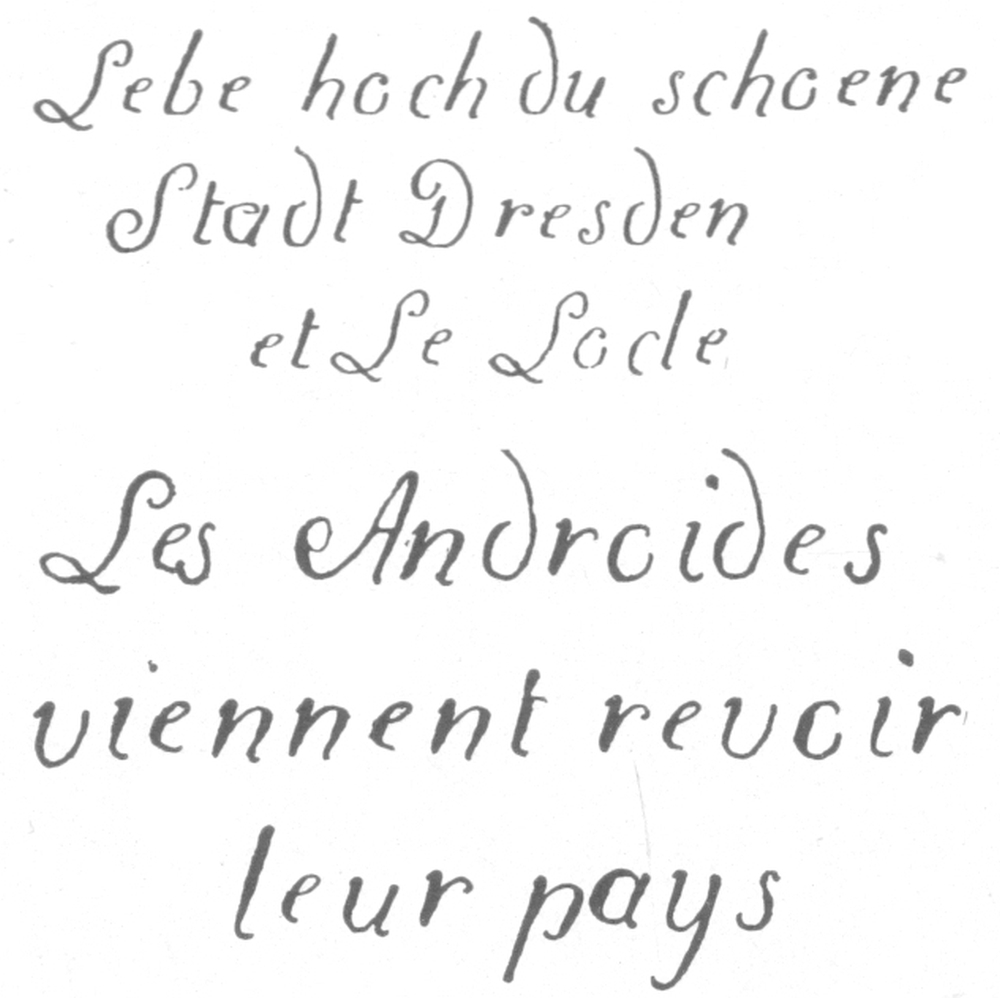 Lebe hoch du schoene
Stadt Dresden
et Le Locle
Les Androides
viennent revoir
leur pays